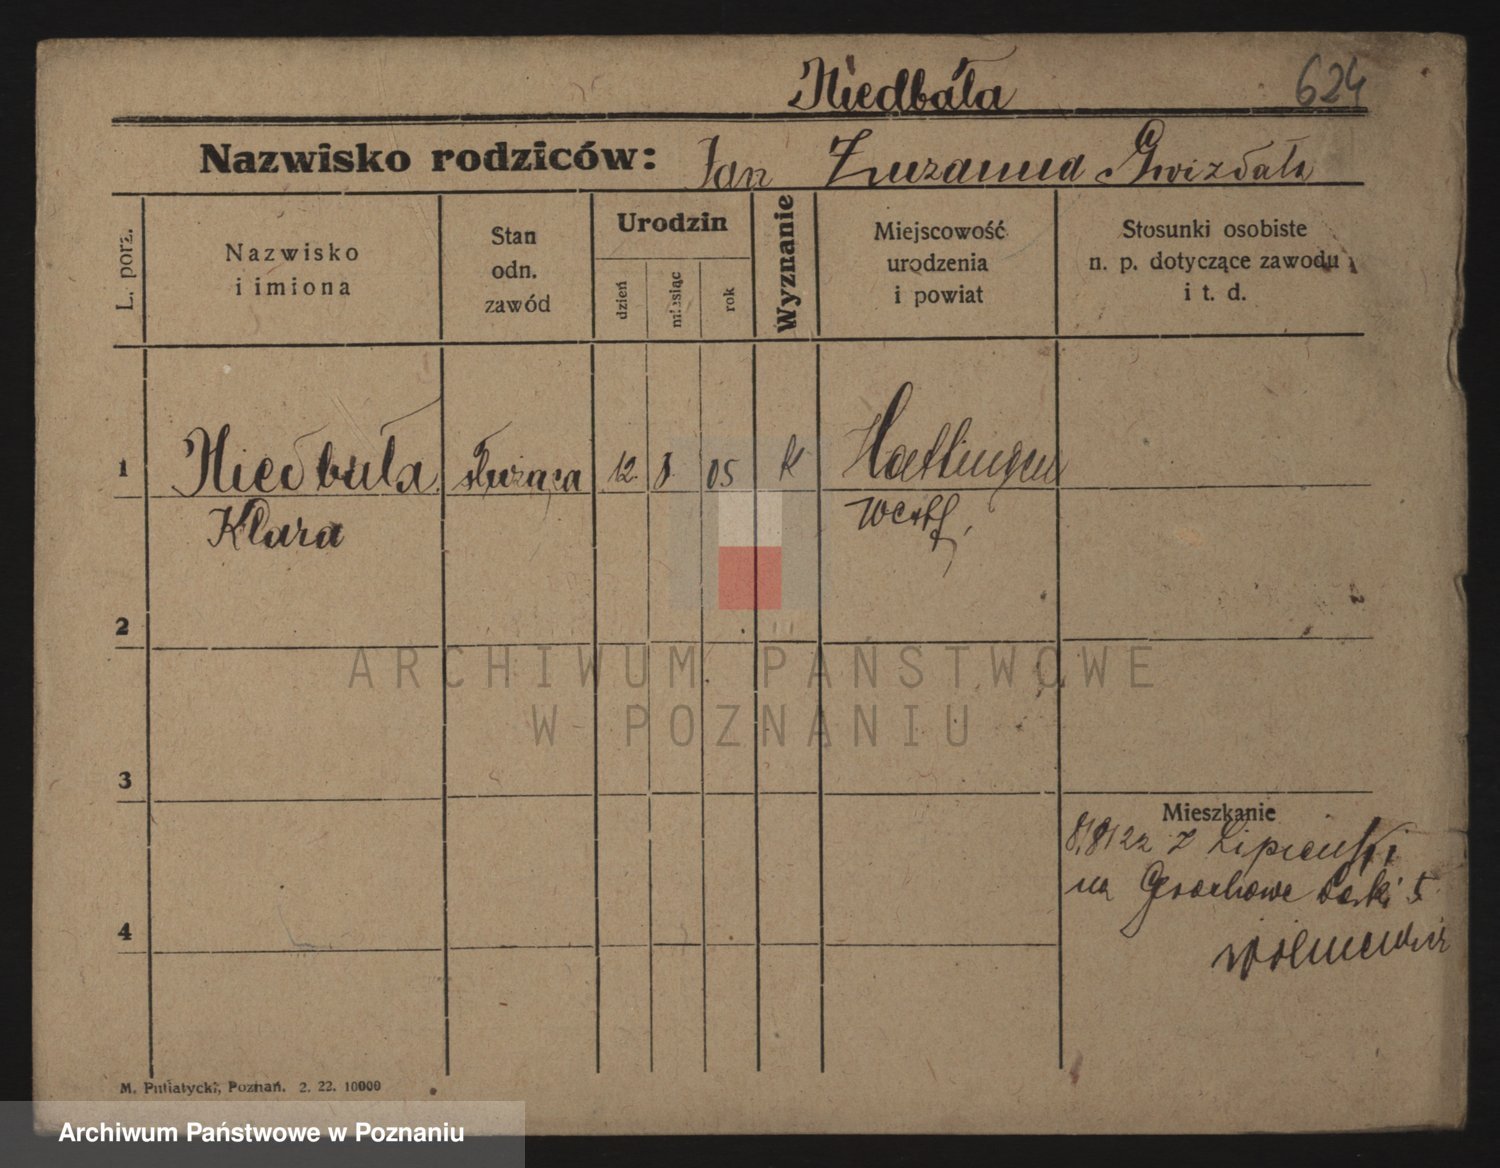 Niedbała 624
Nazwisko rodziców: Jan Zuzanna Gwizdała
L. porz.
Nazwisko
i imiona
Stan
odn.
zawód
Urodzin
dzień
miesiąc
rok
Wyznanie
Miejscowość
urodzenia
i powiat
Stosunki osobiste
n. p. dotyczące zawodu
i t. d.
1 Niedbała służąca 12. 8. 05 K
Klara Westf.
2
3
Mieszkanie
8/8/22 z Lipienski
na Grochowe Łąki 5
4
M. Putiatycki, Poznań. 2. 22. 10000
ARCHIWUM PAŃSTWOWE
W POZNANIU
Archiwum Państwowe w Poznaniu